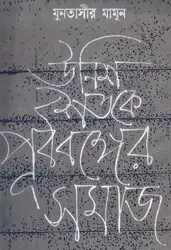 মুনতাসীর মামুন
উনিশ
শতকে
পূর্ববঙ্গের
সমাজ